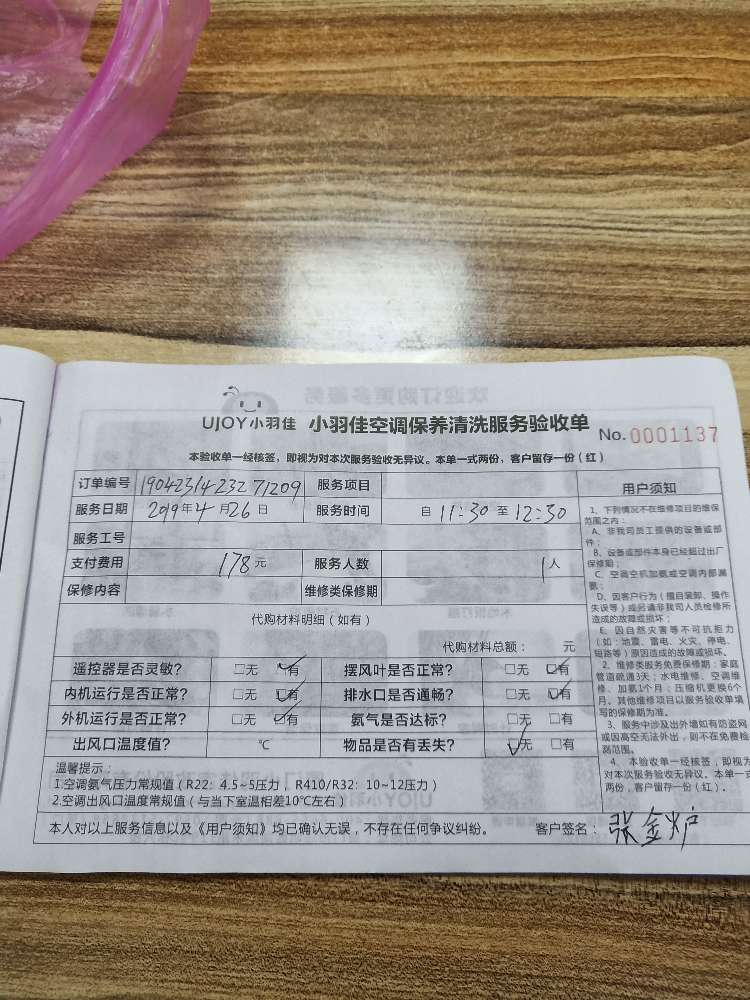 UJOY小羽佳 小羽佳空调保养清洗服务验收单 No. 0001137
本验收单一经核签，即视为对本次服务验收无异议。本单一式两份，客户留存一份（红）
订单编号 1904231423271209 服务项目
服务日期 2019年4月26日 服务时间 自 11:30 至 12:30
服务工号
支付费用 178 元 服务人数 1人
保修内容 维修类保修期
代购材料明细（如有）
代购材料总额： 元
遥控器是否灵敏？ □无 □有 摆风叶是否正常？ □无 □有
内机运行是否正常？ □无 □有 排水口是否通畅？ □无 □有
外机运行是否正常？ □无 □有 氨气是否达标？ □无 □有
出风口温度值？ ℃ 物品是否有丢失？ □无 □有
温馨提示：
1.空调氨气压力常规值（R22：4.5~5压力，R410/R32：10~12压力）
2.空调出风口温度常规值（与当下室温相差10℃左右）
本人对以上服务信息以及《用户须知》均已确认无误，不存在任何争议纠纷。 客户签名：张金炉
用户须知
1、下列情况不在维修项目的维保
范围之内：
A、非我司员工提供的设备或部
件；
B、设备或部件本身已经超过出厂
保修期；
C、空调空机加氨或空调内部漏
氨；
D、因客户行为（擅自装卸、操作
失误等）或另请非我司人员检修所
造成的故障或损坏；
E、因自然灾害等不可抗拒力
（如：地震、雷电、火灾、停电、
短路等）原因造成的故障或损坏。
2、维修类服务免费保修期：家庭
管道疏通3天；水电维修、空调维
修、加氨1个月；压缩机更换6个
月。其他维修项目以服务验收单填
写的保修期为准。
3、服务中涉及出外墙如有防盗网
或因高空无法外出，则不在免费检
测范围。
4、本验收单一经核签，即视为
对本次服务验收无异议。本单一式
两份，客户留存一份（红）。